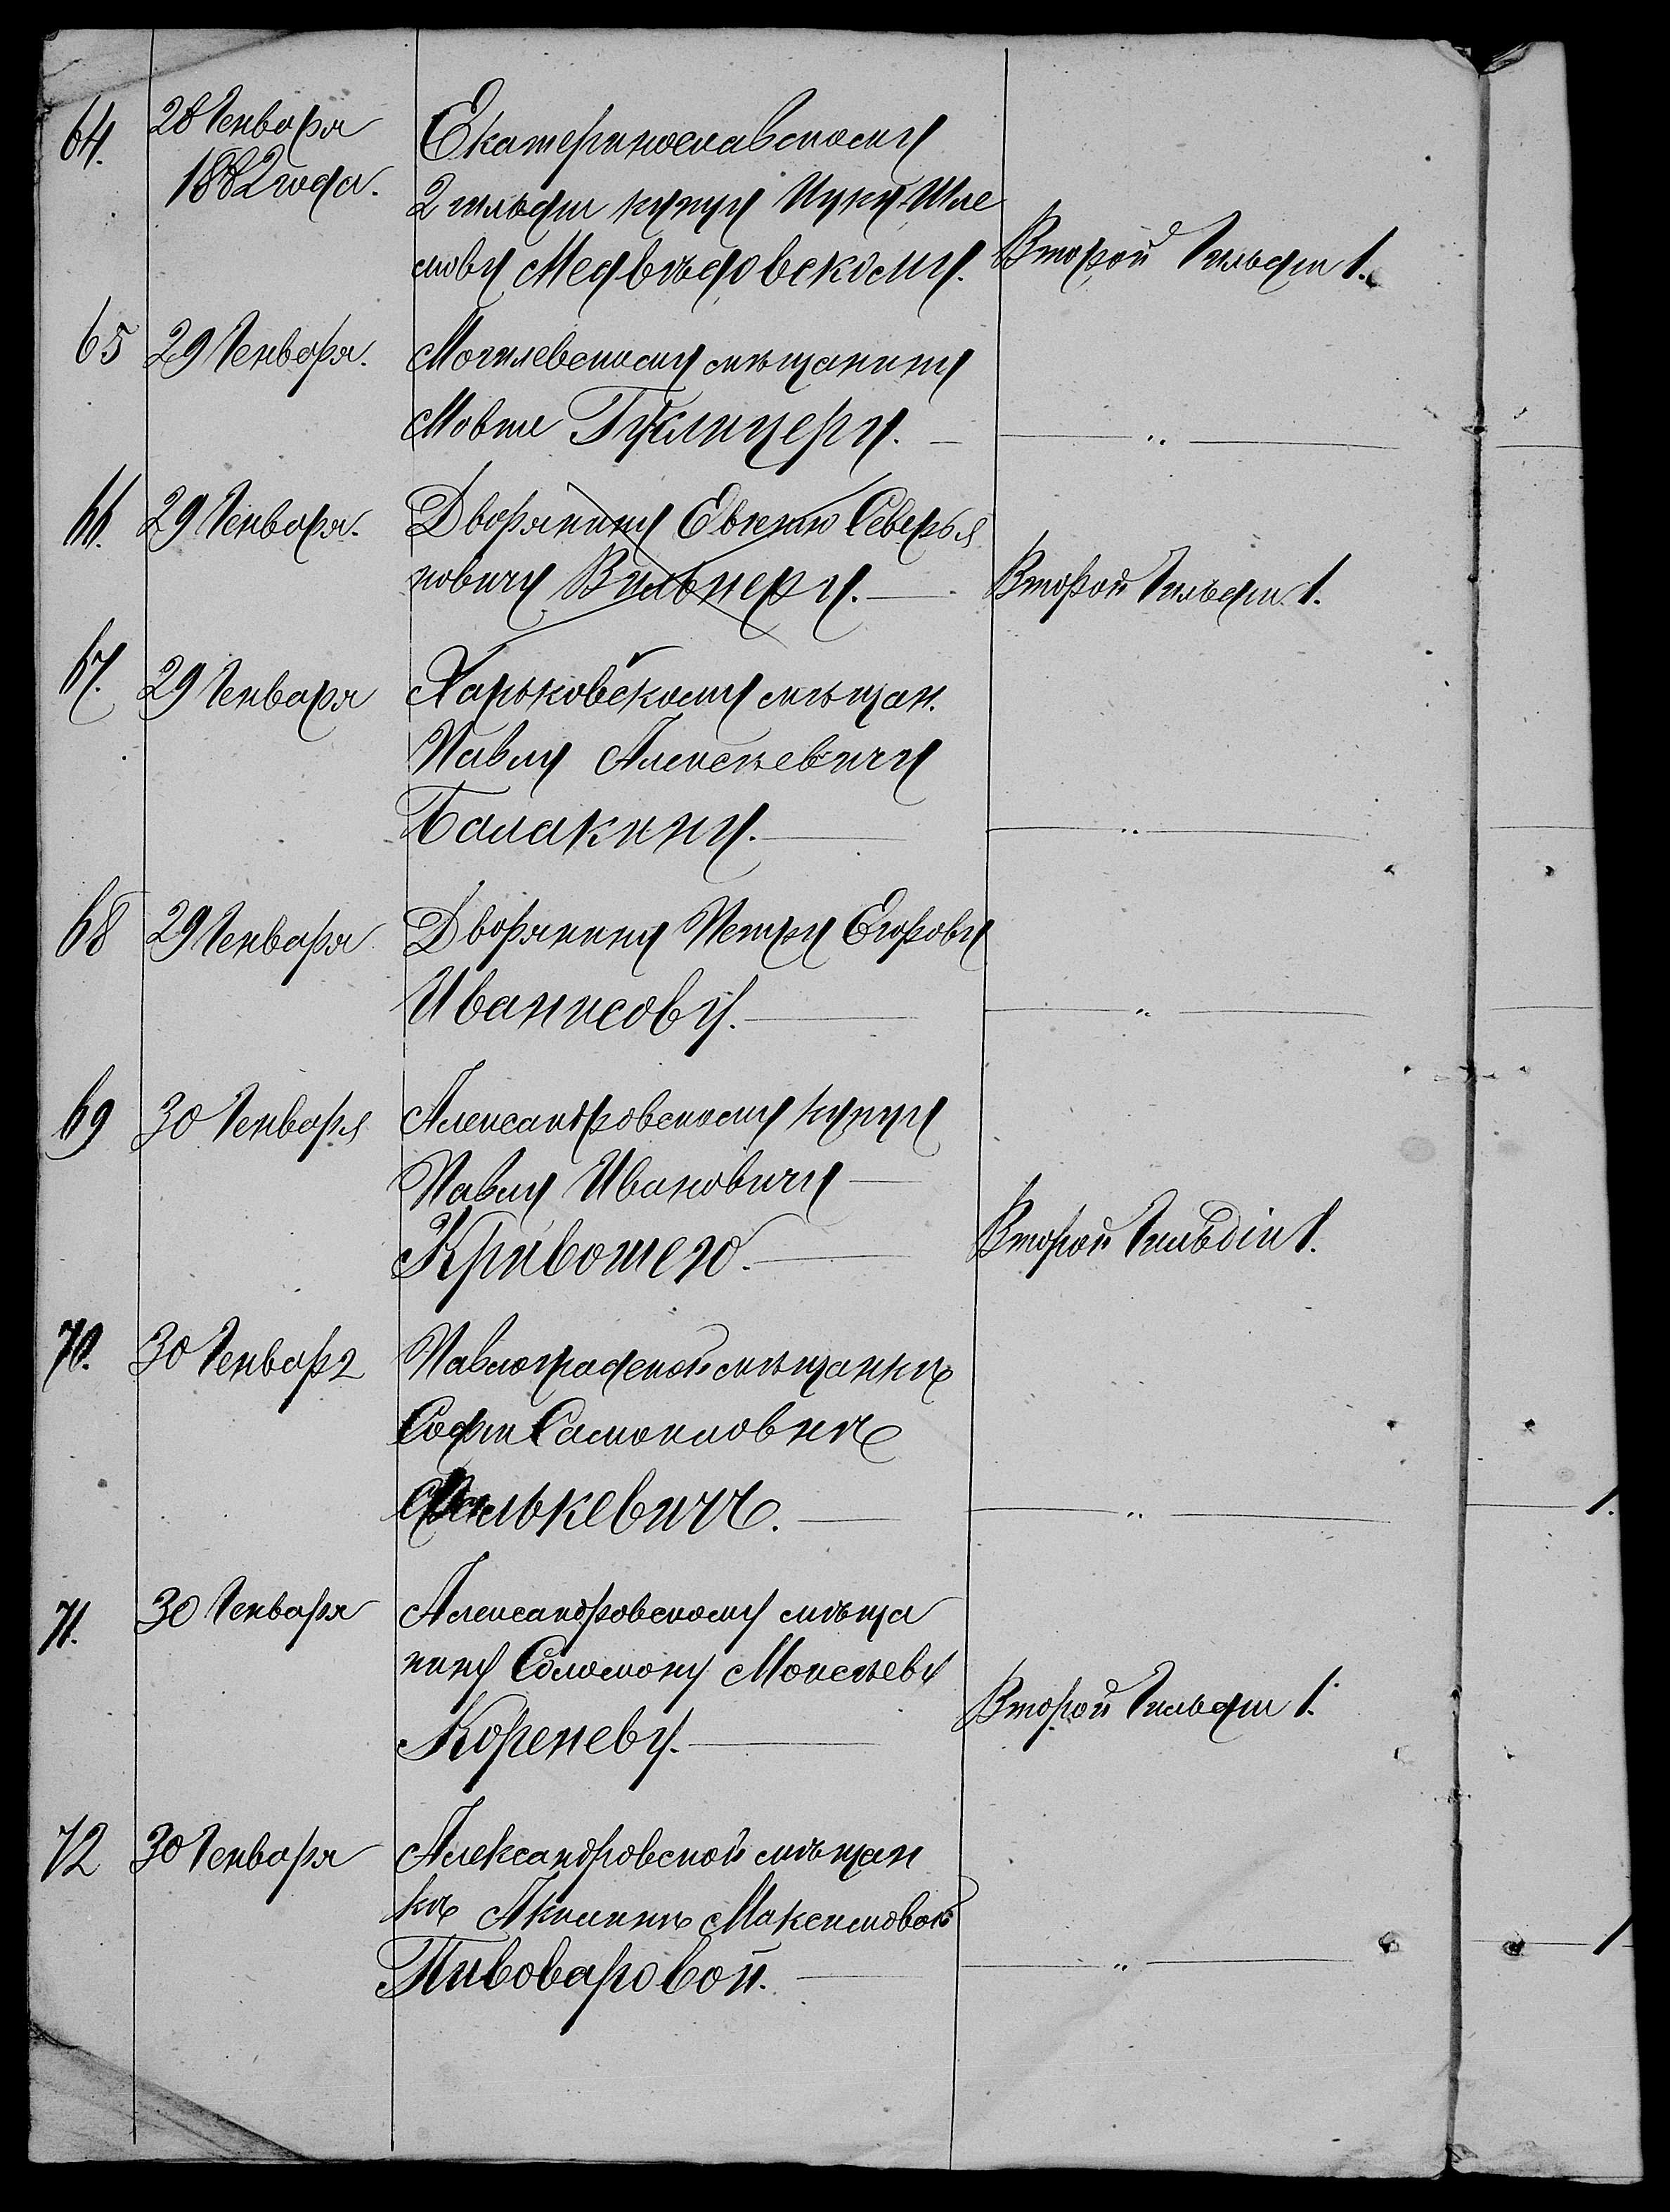 64. 28 Генваря Екатеринославскому
1882 года. 2 гильдіи купцу Ицку Шле
мову Медвѣдовскому. Второй Гильдіи 1.
65 29 Генваря. Могилевскому мѣщанину
Мовше Гуклицеру. — — „ —
66. 29 Генваря. Дворянину Евгенію Северья
новичу Вильнеру. — Второй Гильдіи. 1.
67. 29 Генваря Харьковскому мѣщан.
Павлу Алексѣевичу
Балакину. — — „ —
68 29 Генваря Дворянину Петру Егорову
Иванисову. — — „ —
69 30 Генваря Александровскому купцу
Павлу Ивановичу —
Кривошею. — Второй Гильдіи 1.
70. 30 Генваря Павлоградской мѣщанкѣ
Софіи Самойловнѣ
— — „ — 1.
71. 30 Генваря Александровскому мѣща
нину Соломону Моисѣеву
Кореневу. — Второй Гильдіи 1.
72 30 Генваря Александровской мѣщан
кѣ Акилинѣ Максимовой
Пивоваровой. — — „ — 1